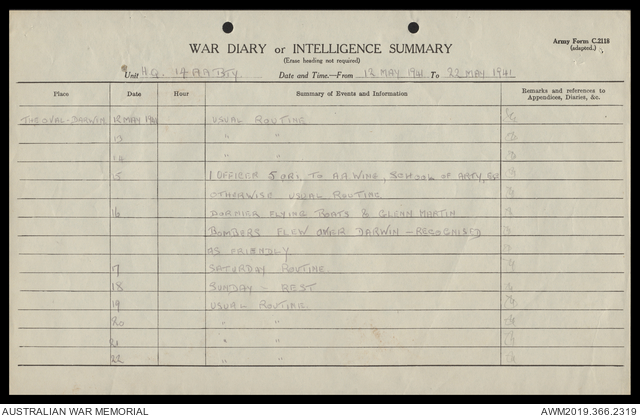 Army Form C.2118
(adapted.)
WAR DIARY or INTELLIGENCE SUMMARY
(Erase heading not required)
Unit H.Q. 14 A A BTY Date and Time.—From 13 MAY 1941 To 22 MAY 1941
Place Date Hour Summary of Events and Information Remarks and references to Appendices, Diaries, &c.
THE OVAL-DARWIN 12 MAY 1941 USUAL ROUTINE
13 " "
14 " "
15 1 OFFICER 5 ORS. TO A.A WING, SCHOOL OF ARTY,
OTHERWISE USUAL ROUTINE
16 DORNIER FLYING BOATS & GLENN MARTIN
BOMBERS FLEW OVER DARWIN — RECOGNISED
AS FRIENDLY
17 SATURDAY ROUTINE
18 SUNDAY - REST
19 USUAL ROUTINE
20 " "
21 " "
22 " "
AUSTRALIAN WAR MEMORIAL AWM2019.366.2319